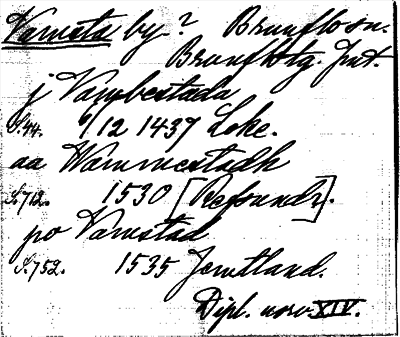 Vamsta by? Brunflo sn.
Brunflo tg. Jmt.
j Vambestada
S. 44. 9/12 1437 Loke.
aa Wammestadh
S. 712. 1530 [Refsundr].
po Vamstad
S. 752. 1535 Jemtland.
Dipl. norv. XIV.